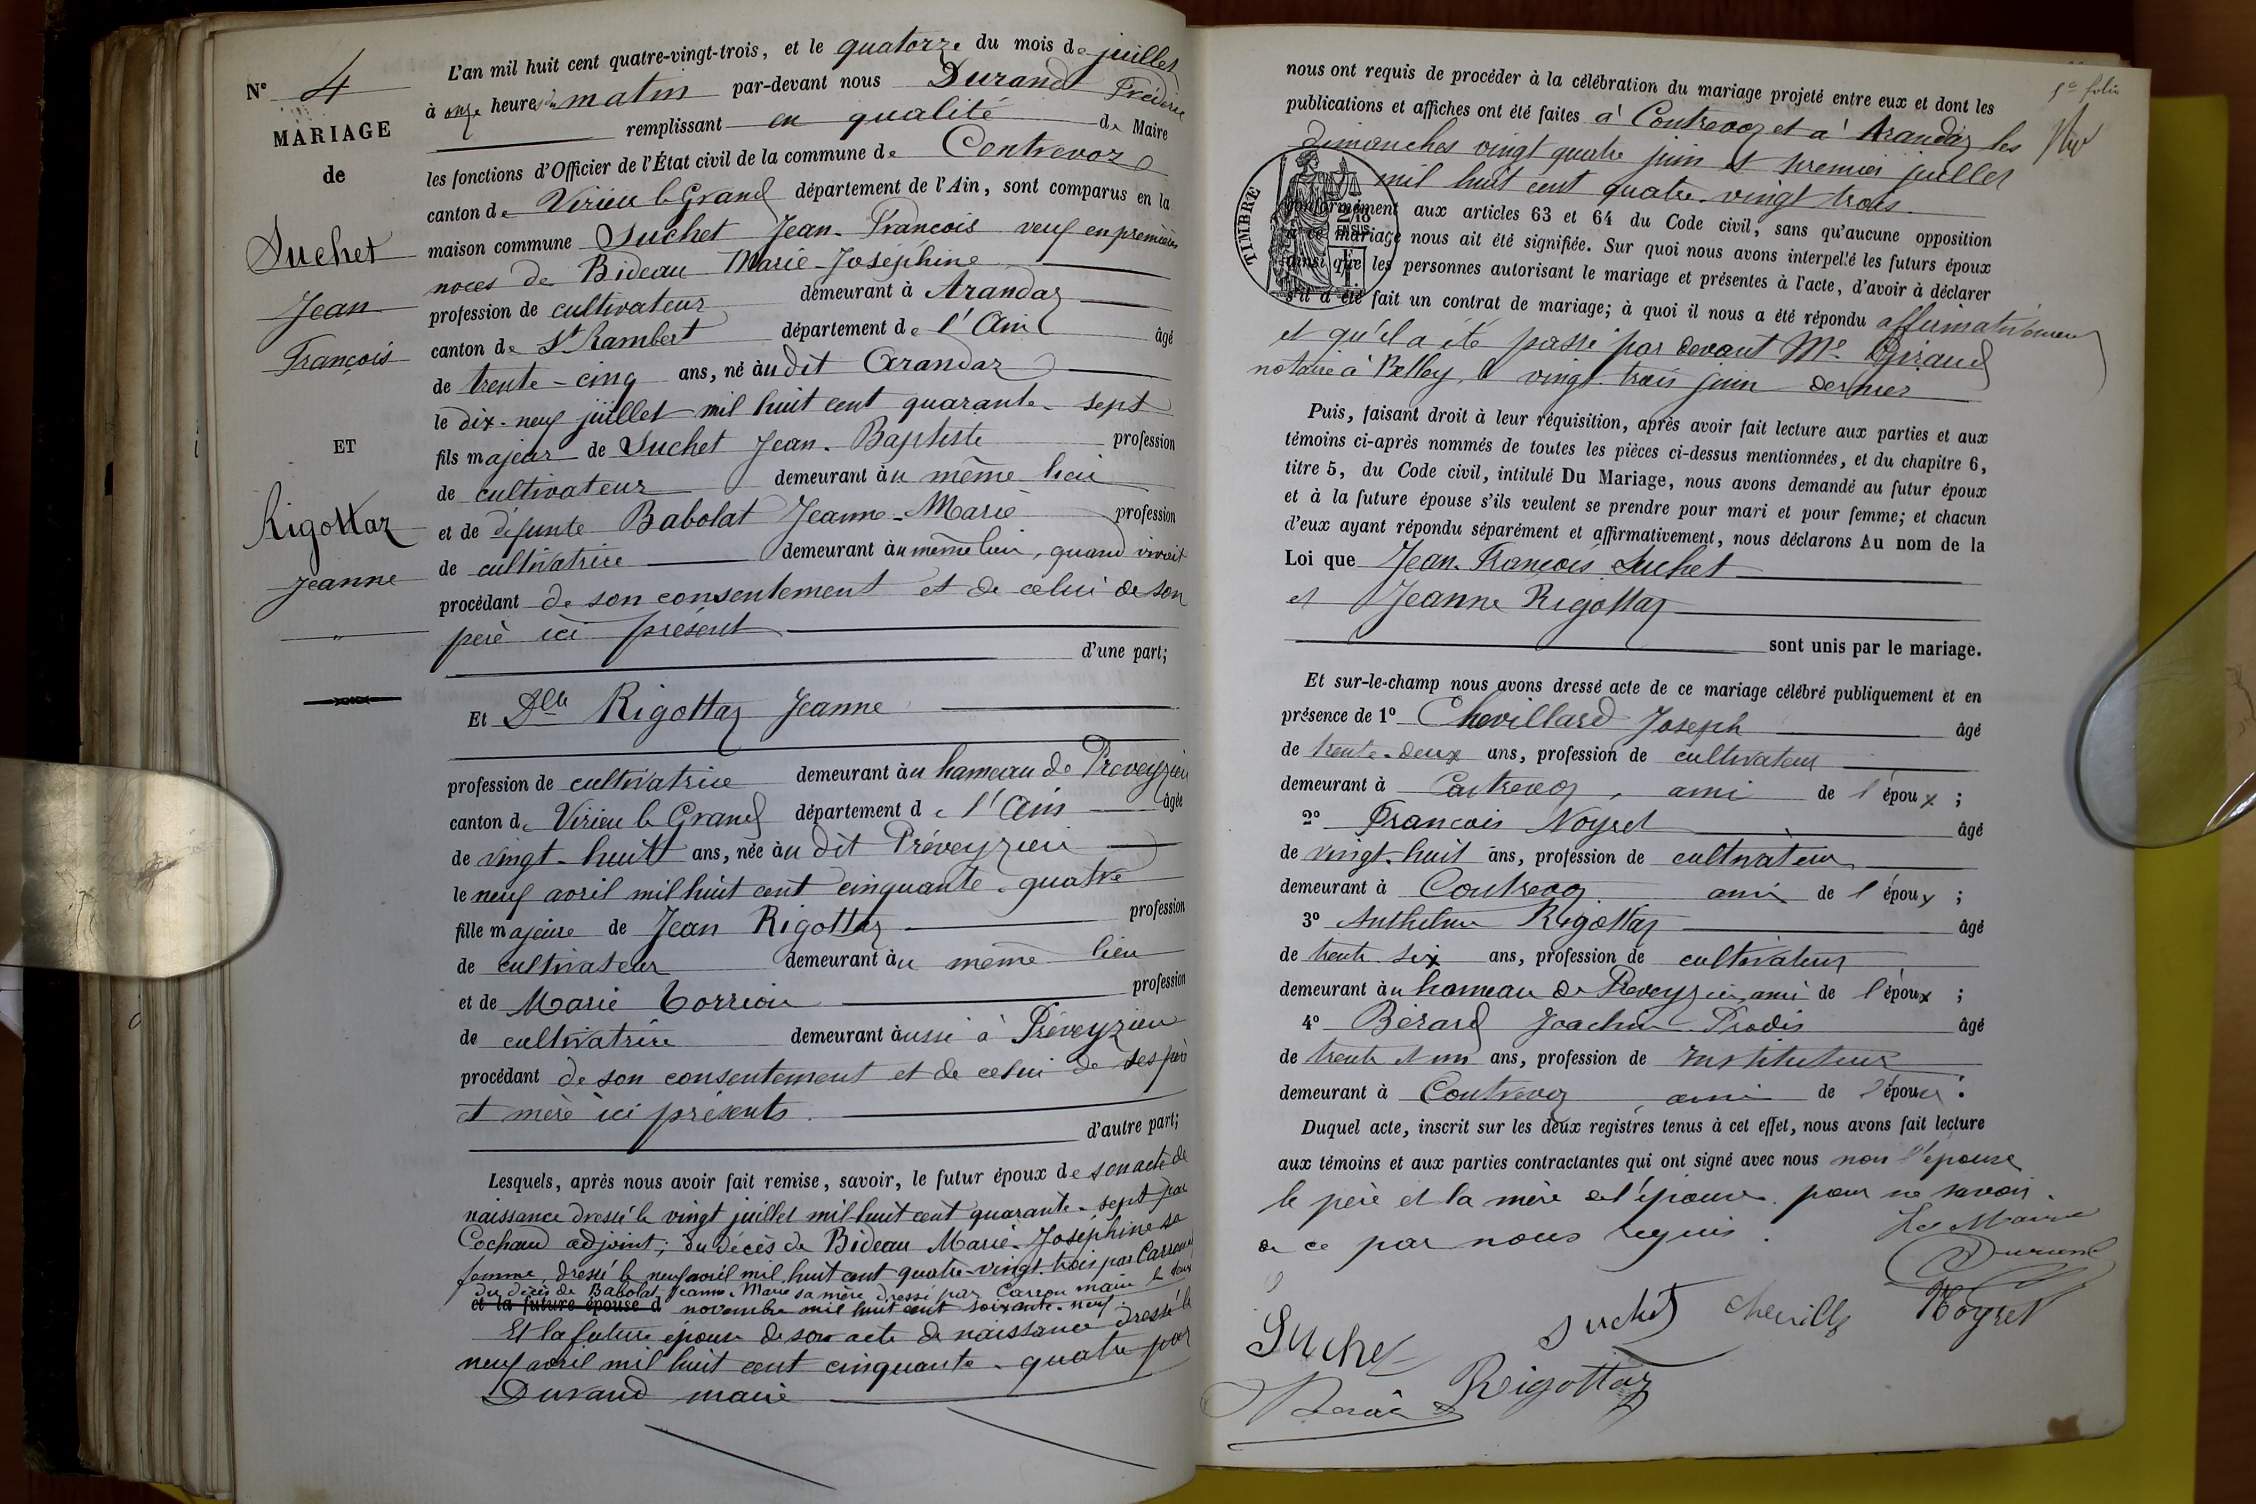 N° 4
MARIAGE
de
Suchet
Jean
François
ET
Rigottaz
Jeanne
L'an mil huit cent quatre-vingt-trois, et le quatorze du mois de juillet
à onze heures du matin par-devant nous Durand Frédéric
remplissant en qualité de Maire
les fonctions d'Officier de l'État civil de la commune de Contrevoz
canton de Virieu le Grand département de l'Ain, sont comparus en la
maison commune Suchet Jean-François veuf en premières
noces de Bideau Marie-Joséphine
profession de cultivateur demeurant à Arandaz
canton de St Rambert département de l'Ain âgé
de trente-cinq ans, né audit Arandaz
le dix-neuf juillet mil huit cent quarante-sept
fils majeur de Suchet Jean-Baptiste profession
de cultivateur demeurant au même lieu
et de défunte Babolat Jeanne-Marie profession
de cultivatrice demeurant au même lieu, quand vivait
procédant de son consentement et de celui de son
père ici présent
d'une part;
Et Dlle Rigottaz Jeanne
profession de cultivatrice demeurant au hameau de Preveyzieu
canton de Virieu le Grand département de l'Ain âgée
de vingt-huit ans, née au dit Préveyzieu
le neuf avril mil huit cent cinquante-quatre
fille majeure de Jean Rigottaz profession
de cultivateur demeurant au même lieu
et de Marie Corriou profession
de cultivatrice demeurant aussi à Préveyzieu
procédant de son consentement et de celui de ses père
et mère ici présents.
d'autre part;
Lesquels, après nous avoir fait remise, savoir, le futur époux de son acte de
naissance dressé le vingt juillet mil huit cent quarante-sept par
Cochaud adjoint; du décès de Bideau Marie-Joséphine sa
femme, dressé le neuf avril mil huit cent quatre-vingt-trois par
du décès de Babolat Jeanne-Marie sa mère dressé par maire le deux
et la future épouse d novembre mil huit cent soixante-neuf
Et la future épouse de son acte de naissance dressé le
neuf avril mil huit cent cinquante-quatre par
Durand maire
5e folio
nous ont requis de procéder à la célébration du mariage projeté entre eux et dont les
publications et affiches ont été faites à Contrevoz et à Arandaz les
dimanches vingt quatre juin et premier juillet
mil huit cent quatre-vingt trois.
TIMBRE
conformément aux articles 63 et 64 du Code civil, sans qu'aucune opposition
à ce mariage nous ait été signifiée. Sur quoi nous avons interpellé les futurs époux
ainsi que les personnes autorisant le mariage et présentes à l'acte, d'avoir à déclarer
s'il a été fait un contrat de mariage; à quoi il nous a été répondu affirmativement
et qu'il a été passé par devant Me
notaire à Belley, le vingt-trois juin dernier
Puis, faisant droit à leur réquisition, après avoir fait lecture aux parties et aux
témoins ci-après nommés de toutes les pièces ci-dessus mentionnées, et du chapitre 6,
titre 5, du Code civil, intitulé Du Mariage, nous avons demandé au futur époux
et à la future épouse s'ils veulent se prendre pour mari et pour femme; et chacun
d'eux ayant répondu séparément et affirmativement, nous déclarons Au nom de la
Loi que Jean-François Suchet
et Jeanne Rigottaz
sont unis par le mariage.
Et sur-le-champ nous avons dressé acte de ce mariage célébré publiquement et en
présence de 1° Chevillard Joseph âgé
de trente-deux ans, profession de cultivateur
demeurant à Contrevoz, ami de l'époux;
2° François Noyret âgé
de vingt-huit ans, profession de cultivateur
demeurant à Contrevoz ami de l'époux;
3° Anthelme Rigottaz âgé
de trente-six ans, profession de cultivateur
demeurant au hameau de Preveyzieu, ami de l'époux;
4° Bérard Joachim âgé
de trente et un ans, profession de Instituteur
demeurant à Contrevoz, ami de l'époux.
Duquel acte, inscrit sur les deux registres tenus à cet effet, nous avons fait lecture
aux témoins et aux parties contractantes qui ont signé avec nous non l'épouse
le père et la mère de l'épouse. pour ne savoir.
de ce par nous requis.
Le Maire
Durand
Suchet
Suchet
Chevilla
Noyret
Rigottaz